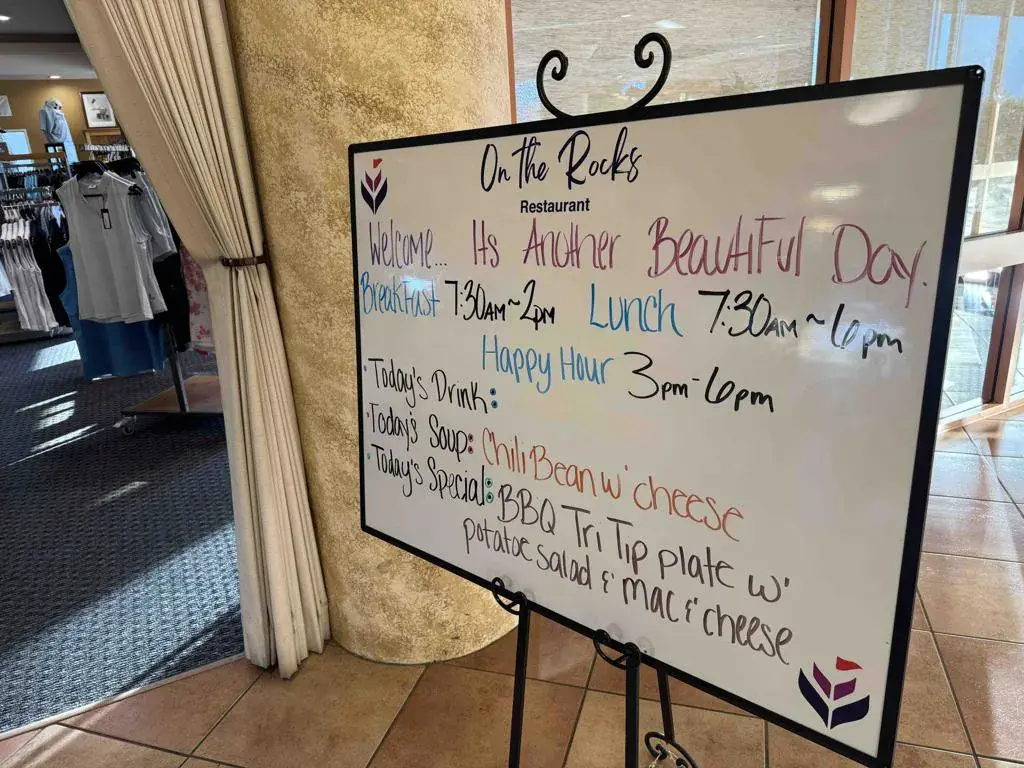 On the Rocks
Restaurant
Welcome... Its Another Beautiful Day.
Breakfast 7:30am~2pm Lunch 7:30am~6pm
Happy Hour 3pm-6pm
Today's Drink:
Today's Soup: Chili Bean w' cheese
Today's Special: BBQ Tri Tip plate w'
potatoe salad & mac & cheese